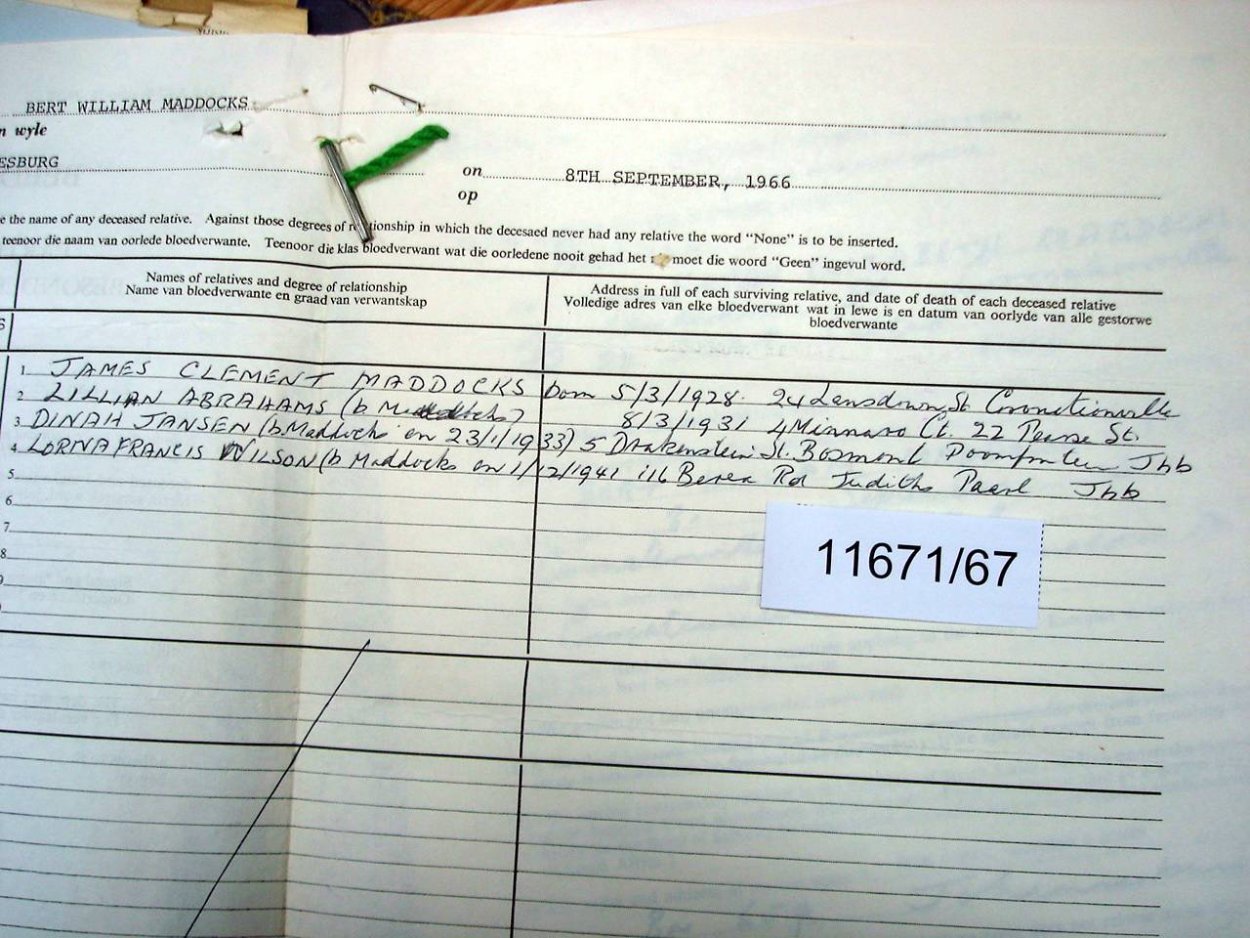 BERT WILLIAM MADDOCKS
n wyle
ESBURG on 8TH SEPTEMBER, 1966
op
e the name of any deceased relative. Against those degrees of relationship in which the decesaed never had any relative the word “None” is to be inserted.
teenoor die naam van oorlede bloedverwante. Teenoor die klas bloedverwant wat die oorledene nooit gehad het moet die woord “Geen” ingevul word.
Names of relatives and degree of relationship
Name van bloedverwante en graad van verwantskap
Address in full of each surviving relative, and date of death of each deceased relative
Volledige adres van elke bloedverwant wat in lewe is en datum van oorlyde van alle gestorwe
bloedverwante
S
1 JAMES CLEMENT MADDOCKS born 5/3/1928. 24 Lansdown St. Coronationville
2 LILLIAN ABRAHAMS (b Maddocks) 8/3/1931 4 Ct. 22 St.
3 DINAH JANSEN (b. Maddocks on 23/1/1933) 5 Drakenstein St. Bosmont Jhb
4 LORNA FRANCIS WILSON (b Maddocks on 1/12/1941 116 Berea Rd Judiths Paarl Jhb
5
6
7
8
9
11671/67